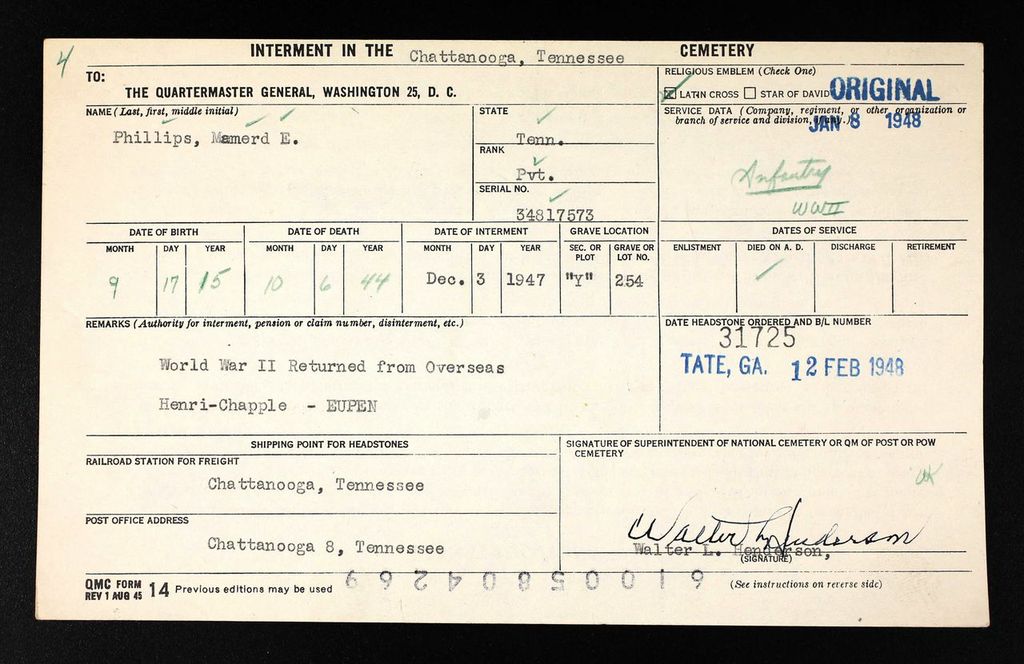 4
INTERMENT IN THE Chattanooga, Tennessee CEMETERY
TO:
THE QUARTERMASTER GENERAL, WASHINGTON 25, D. C.
RELIGIOUS EMBLEM (Check One)
☒ LATIN CROSS ☐ STAR OF DAVID
ORIGINAL
JAN 8 1948
NAME (Last, first, middle initial)
Phillips, Mamerd E.
STATE
Tenn.
RANK
Pvt.
SERIAL NO.
34817573
SERVICE DATA (Company, regiment, or other organization or
branch of service and division, if any.)
Infantry
WWII
DATE OF BIRTH DATE OF DEATH DATE OF INTERMENT GRAVE LOCATION DATES OF SERVICE
MONTH DAY YEAR MONTH DAY YEAR MONTH DAY YEAR SEC. OR PLOT GRAVE OR LOT NO. ENLISTMENT DIED ON A. D. DISCHARGE RETIREMENT
9 17 15 10 6 44 Dec. 3 1947 "Y" 254 ✓
REMARKS (Authority for interment, pension or claim number, disinterment, etc.)
World War II Returned from Overseas
Henri-Chapple - EUPEN
DATE HEADSTONE ORDERED AND B/L NUMBER
31725
TATE, GA. 12 FEB 1948
SHIPPING POINT FOR HEADSTONES
RAILROAD STATION FOR FREIGHT
Chattanooga, Tennessee
POST OFFICE ADDRESS
Chattanooga 8, Tennessee
SIGNATURE OF SUPERINTENDENT OF NATIONAL CEMETERY OR QM OF POST OR POW
CEMETERY
Walter L. Henderson
Walter L. Henderson,
(SIGNATURE)
QMC FORM
REV 1 AUG 45 14 Previous editions may be used
(See instructions on reverse side)